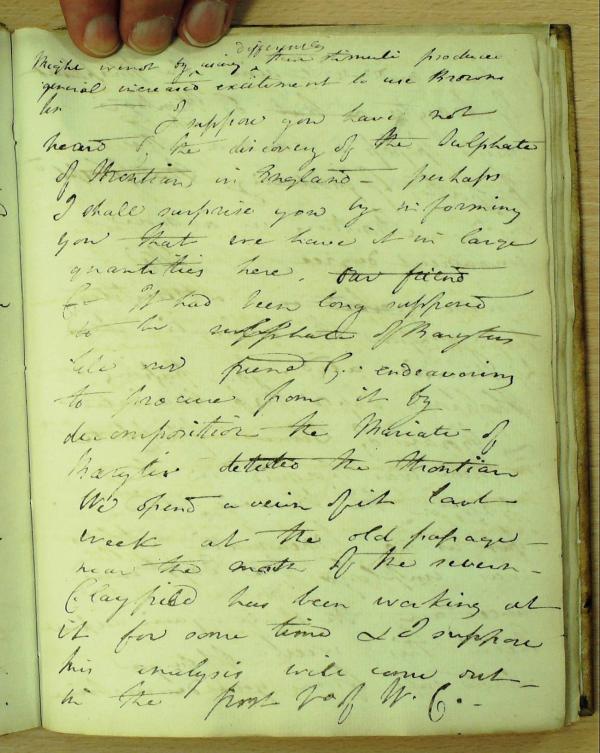 different
Might we not by using these stimuli produce
general increased excitement to use Browns
I suppose you have not
heard of the discovery of the Sulphate
of Strontian in England – perhaps
I shall surprise you by informing
you that we have it in large
quantities here. our friend
C– It had been long supposed
to be sulphate of Barytes
till our friend C– endeavoring
to procure from it by
decomposition the Muriate of
Barytes detected the Strontian
We opend a vein of it last
week at the old passage –
near the mouth of the severn –
Clayfield has been working at
it for some time & I suppose
his analysis will come out –
in the first Vo of W. C. –